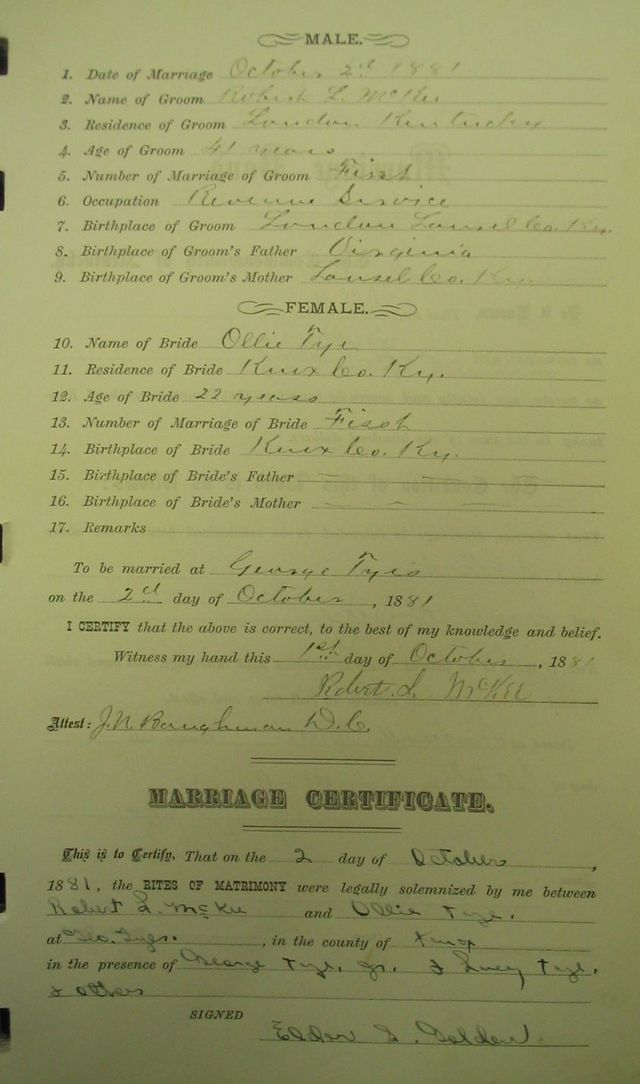 MALE.
1. Date of Marriage October 2d 1881
2. Name of Groom Robert L. McKee
3. Residence of Groom London Kentucky
4. Age of Groom 41 years
5. Number of Marriage of Groom First
6. Occupation Revenue Service
7. Birthplace of Groom London Laurel Co. Ky.
8. Birthplace of Groom's Father Virginia
9. Birthplace of Groom's Mother Laurel Co. Ky.
FEMALE.
10. Name of Bride Ollie Tye
11. Residence of Bride Knox Co. Ky.
12. Age of Bride 22 years
13. Number of Marriage of Bride First
14. Birthplace of Bride Knox Co. Ky.
15. Birthplace of Bride's Father
16. Birthplace of Bride's Mother
17. Remarks
To be married at George Tyes
on the 2d day of October, 1881
I CERTIFY that the above is correct, to the best of my knowledge and belief.
Witness my hand this 1st day of October, 1881
Robert L. McKee
Attest: J. N. Baughman D. C.
MARRIAGE CERTIFICATE.
This is to Certify, That on the 2 day of October,
1881, the RITES OF MATRIMONY were legally solemnized by me between
Robert L. McKee and Ollie Tye.
at Geo. Tyes., in the county of Knox
in the presence of George Tye, Jr. & Lucy Tye,
& others
SIGNED
Elder S. Golden.